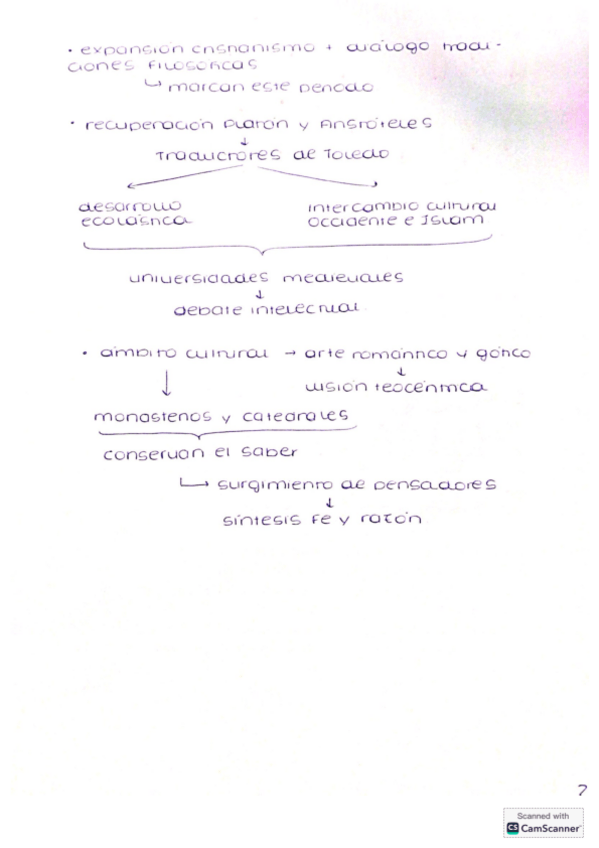 · expansión cristianismo + diálogo tradi-
ciones filosóficas
↳ marcan este periodo
· recuperación Platón y Aristóteles
↓
Traductores de Toledo
desarrollo
ecolástica
intercambio cultural
Occidente e Islam
universidades medievales
↓
debate intelectual
· ámbito cultural → arte románico y gótico
↓ ↓
visión teocéntrica
monasterios y catedrales
conservan el saber
↳ surgimiento de pensadores
↓
síntesis fe y razón
7
Scanned with
CS CamScanner